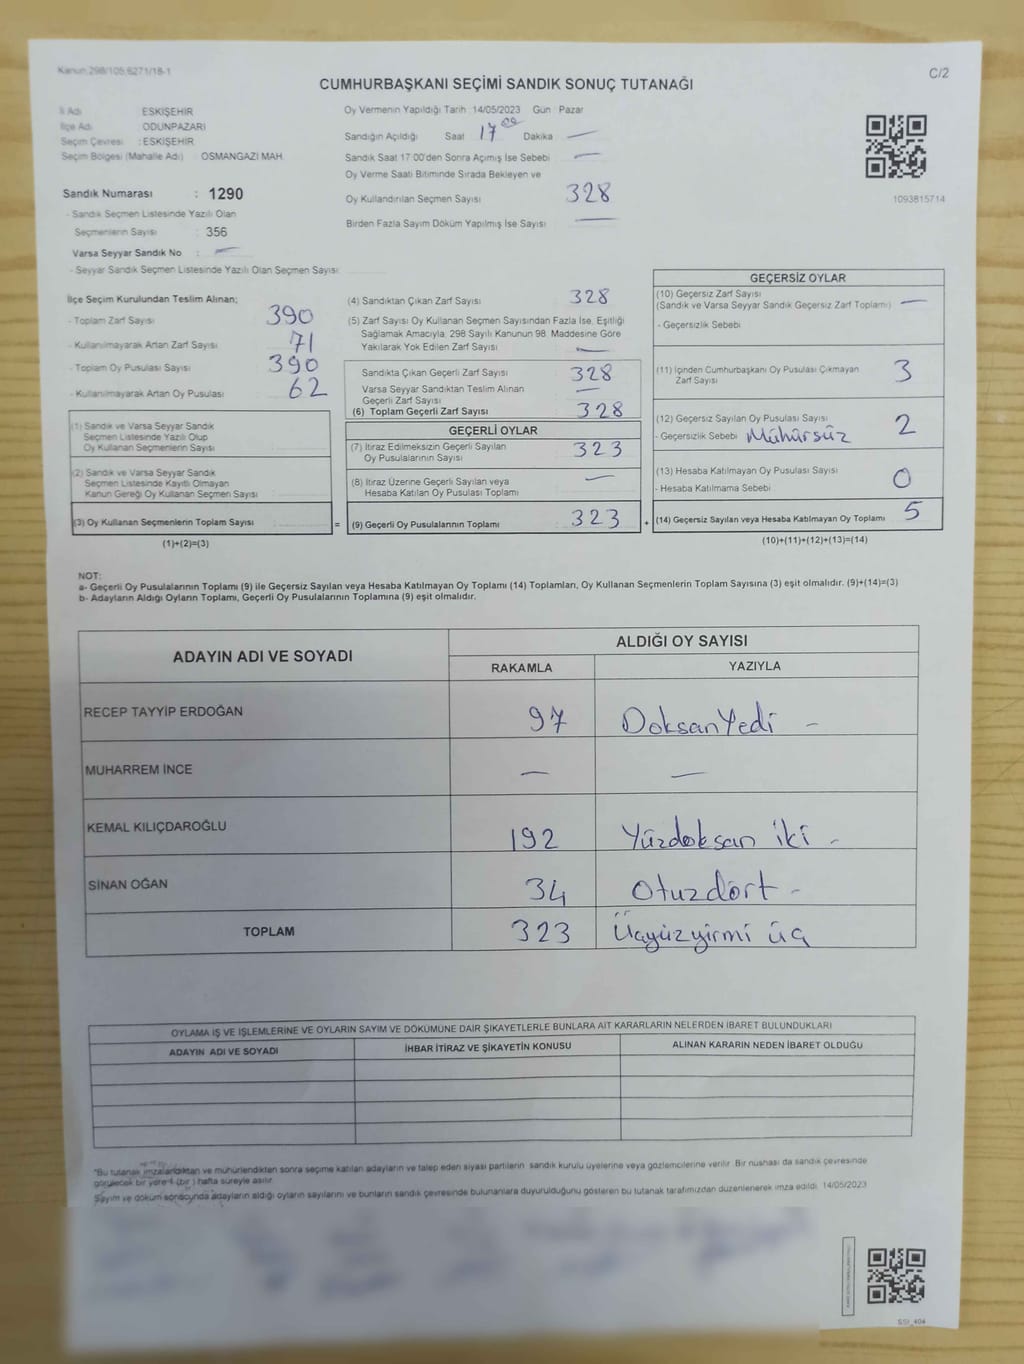 Kanun:298/105,6271/18-1
C/2
CUMHURBAŞKANI SEÇİMİ SANDIK SONUÇ TUTANAĞI
İl Adı ESKİŞEHİR
İlçe Adı ODUNPAZARI
Seçim Çevresi :ESKİŞEHİR
Seçim Bölgesi (Mahalle Adı) OSMANGAZİ MAH.
Sandık Numarası : 1290
- Sandık Seçmen Listesinde Yazılı Olan
Seçmenlerin Sayısı : 356
Varsa Seyyar Sandık No : —
- Seyyar Sandık Seçmen Listesinde Yazılı Olan Seçmen Sayısı:
Oy Vermenin Yapıldığı Tarih :14/05/2023 Gün : Pazar
Sandığın Açıldığı Saat 17 00 Dakika —
Sandık Saat 17:00'den Sonra Açılmış İse Sebebi —
Oy Verme Saati Bitiminde Sırada Bekleyen ve
Oy Kullandırılan Seçmen Sayısı 328
Birden Fazla Sayım Döküm Yapılmış İse Sayısı —
1093815714
İlçe Seçim Kurulundan Teslim Alınan;
- Toplam Zarf Sayısı 390
- Kullanılmayarak Artan Zarf Sayısı 71
- Toplam Oy Pusulası Sayısı 390
- Kullanılmayarak Artan Oy Pusulası 62
(1) Sandık ve Varsa Seyyar Sandık
Seçmen Listesinde Yazılı Olup
Oy Kullanan Seçmenlerin Sayısı
(2) Sandık ve Varsa Seyyar Sandık
Seçmen Listesinde Kayıtlı Olmayan
Kanun Gereği Oy Kullanan Seçmen Sayısı
(3) Oy Kullanan Seçmenlerin Toplam Sayısı
(1)+(2)=(3)
=
(4) Sandıktan Çıkan Zarf Sayısı 328
(5) Zarf Sayısı Oy Kullanan Seçmen Sayısından Fazla İse, Eşitliği
Sağlamak Amacıyla; 298 Sayılı Kanunun 98. Maddesine Göre
Yakılarak Yok Edilen Zarf Sayısı —
Sandıkta Çıkan Geçerli Zarf Sayısı 328
Varsa Seyyar Sandıktan Teslim Alınan
Geçerli Zarf Sayısı —
(6) Toplam Geçerli Zarf Sayısı 328
GEÇERLİ OYLAR
(7) İtiraz Edilmeksizin Geçerli Sayılan
Oy Pusulalarının Sayısı 323
(8) İtiraz Üzerine Geçerli Sayılan veya
Hesaba Katılan Oy Pusulası Toplamı —
(9) Geçerli Oy Pusulalarının Toplamı 323
+
GEÇERSİZ OYLAR
(10) Geçersiz Zarf Sayısı
(Sandık ve Varsa Seyyar Sandık Geçersiz Zarf Toplamı) —
- Geçersizlik Sebebi
(11) İçinden Cumhurbaşkanı Oy Pusulası Çıkmayan
Zarf Sayısı 3
(12) Geçersiz Sayılan Oy Pusulası Sayısı 2
- Geçersizlik Sebebi Mühürsüz
(13) Hesaba Katılmayan Oy Pusulası Sayısı 0
- Hesaba Katılmama Sebebi
(14) Geçersiz Sayılan veya Hesaba Katılmayan Oy Toplamı 5
(10)+(11)+(12)+(13)=(14)
NOT:
a- Geçerli Oy Pusulalarının Toplamı (9) ile Geçersiz Sayılan veya Hesaba Katılmayan Oy Toplamı (14) Toplamları, Oy Kullanan Seçmenlerin Toplam Sayısına (3) eşit olmalıdır. (9)+(14)=(3)
b- Adayların Aldığı Oyların Toplamı, Geçerli Oy Pusulalarının Toplamına (9) eşit olmalıdır.
ADAYIN ADI VE SOYADI
ALDIĞI OY SAYISI
RAKAMLA YAZIYLA
RECEP TAYYİP ERDOĞAN 97 DoksanYedi —
MUHARREM İNCE — —
KEMAL KILIÇDAROĞLU 192 Yüzdoksan iki —
SİNAN OĞAN 34 Otuzdört —
TOPLAM 323 Üçyüzyirmi üç
OYLAMA İŞ VE İŞLEMLERİNE VE OYLARIN SAYIM VE DÖKÜMÜNE DAİR ŞİKAYETLERLE BUNLARA AİT KARARLARIN NELERDEN İBARET BULUNDUKLARI
ADAYIN ADI VE SOYADI İHBAR İTİRAZ VE ŞİKAYETİN KONUSU ALINAN KARARIN NEDEN İBARET OLDUĞU
*Bu tutanak imzalandıktan ve mühürlendikten sonra seçime katılan adayların ve talep eden siyasi partilerin sandık kurulu üyelerine veya gözlemcilerine verilir. Bir nüshası da sandık çevresinde
görülecek bir yere 1 (bir) hafta süreyle asılır.
Sayım ve döküm sonucunda adayların aldığı oyların sayılarını ve bunların sandık çevresinde bulunanlara duyurulduğunu gösteren bu tutanak tarafımızdan düzenlenerek imza edildi. 14/05/2023
SSİ_404